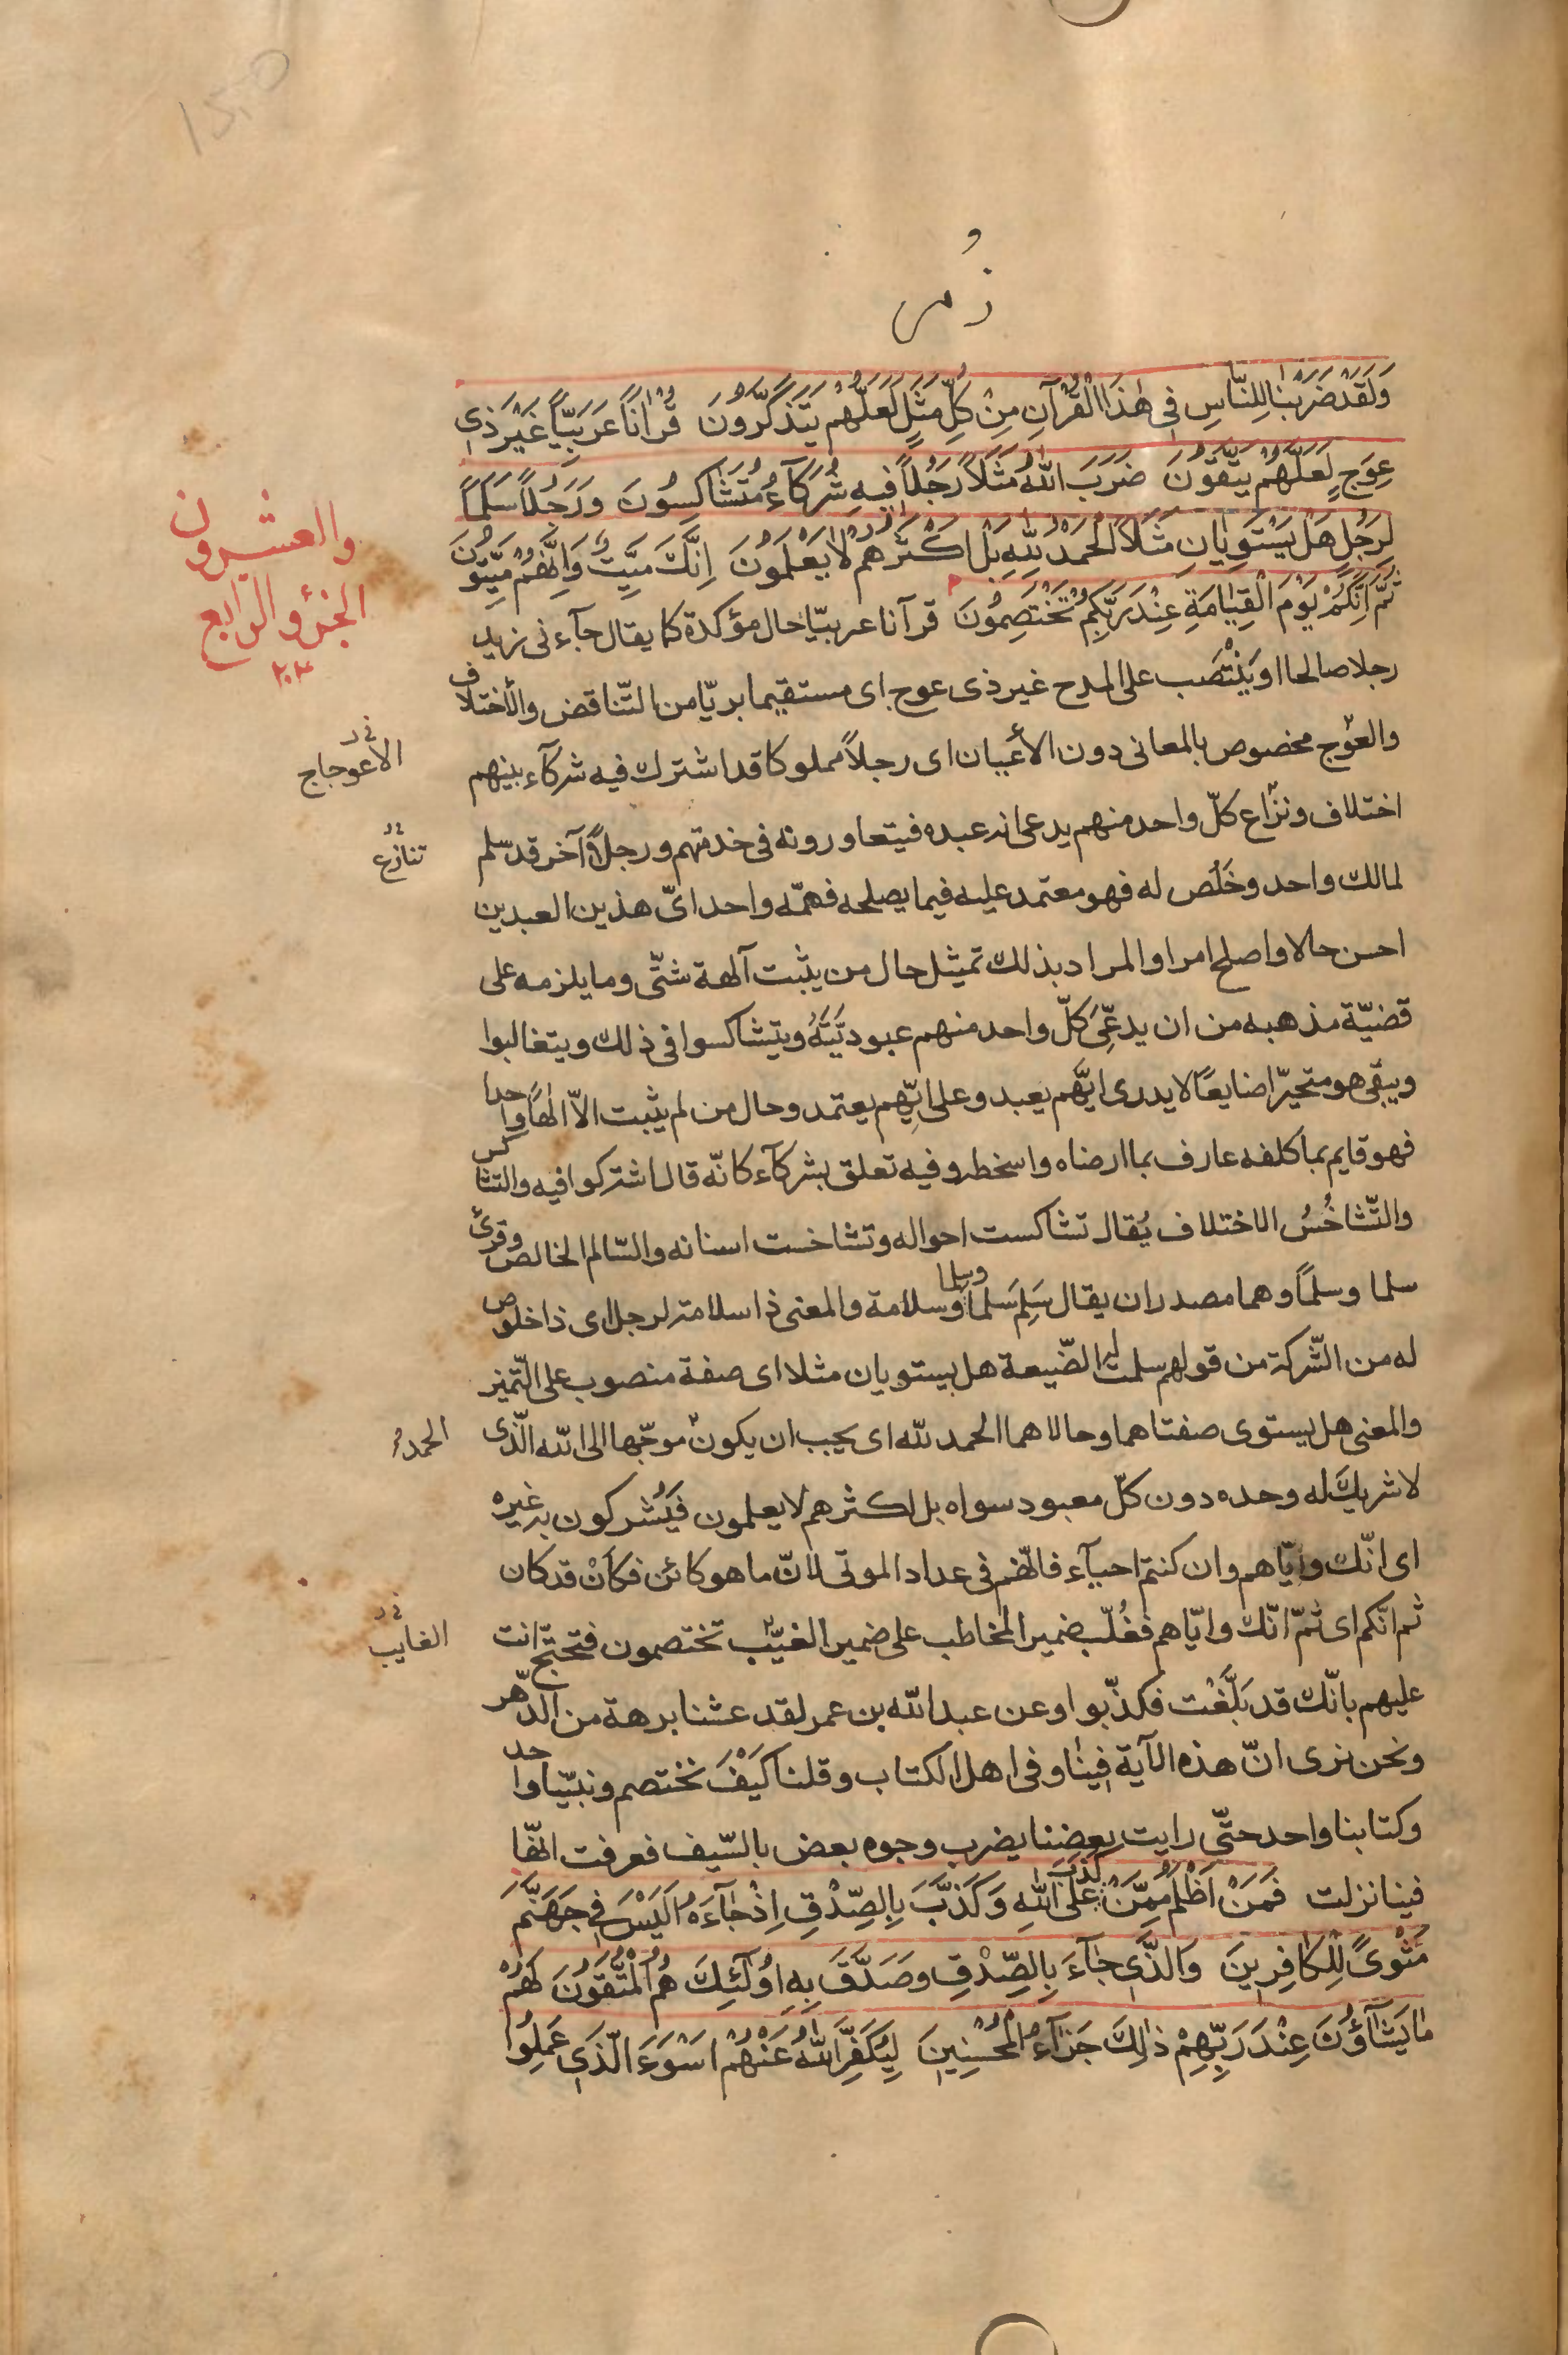 زُمر
وَلَقَدْ ضَرَبْنَا لِلنَّاسِ فِي هٰذَا الْقُرْآنِ مِنْ كُلِّ مَثَلٍ لَعَلَّهُمْ يَتَذَكَّرُونَ قُرْآنًا عَرَبِيًّا غَيْرَ ذِي
عِوَجٍ لَعَلَّهُمْ يَتَّقُونَ ضَرَبَ اللّٰهُ مَثَلًا رَجُلًا فِيهِ شُرَكَآءُ مُتَشَاكِسُونَ وَرَجُلًا سَلَمًا
لِرَجُلٍ هَلْ يَسْتَوِيَانِ مَثَلًا الْحَمْدُ لِلّٰهِ بَلْ اَكْثَرُهُمْ لَا يَعْلَمُونَ اِنَّكَ مَيِّتٌ وَاِنَّهُمْ مَيِّتُونَ
ثُمَّ اِنَّكُمْ يَوْمَ الْقِيٰامَةِ عِنْدَ رَبِّكُمْ تَخْتَصِمُونَ قرآنا عربيّا حال مؤكدة كما يقال جآءنى زيد
رجلا صالحا او يَنْتَصب على المدح غير ذى عوج اى مستقيما بريّا من التّناقض والأختلاف
والعوَج مخصوص بالمعانى دون الأعيان اى رجلاً مملوكا قد اشترك فيه شركآء بينهم
اختلاف ونزاع كلّ واحد منهم يدعى انه عبده فيتعاورونه فى خدمتهم ورجلاً آخر قد سلم
لمالك واحد وخَلُص له فهو معتمد عليه فيما يصلحه فهمّه واحد اىّ هذين العبدين
احسن حالا واصلح امرا والمراد بذلك تمثيل حال من يثبت آلهة شتّى وما يلزمه على
قضيّة مذهبه من ان يدعِّى كلّ واحد منهم عبوديّتَهُ ويتشاكسوا فى ذلك ويتغالبوا
ويبقى هو متحيّرا ضايعًا لا يدرى ايّهم يعبد وعلى ايّهم يعتمد وحال من لم يثبت الاّ الهًا واحدا
فهو قايم بما كلفه عارف بما ارضاه واسخطه وفيه تعلق بشركآء كانّه قال اشتركوا فيه والتشاكس
والتّشاخُسُ الاختلاف يُقال تشاكست احواله وتشاخست اسنانه والسّالم الخالص وقرئ
سلما وسلمًا وهما مصدران يقال سَلِمَ سَلَمًا وسِلما وسلامة والمعنى ذا سلامة لرجل اى ذا خلوص
له من الشّركة من قولهم سلمت له الضّيعة هل يستويان مثلا اى صفة منصوب على التّميز
والمعنى هل يستوى صفتاهما وحالاهما الحمد لله اى يجب ان يكون موجّها الى الله الّذى
لا شريك له وحده دون كلّ معبود سواه بل اكثرهم لا يعلمون فيُشركون به غيره
اى انّك وايّاهم وان كنتم احيآء فانّهم فى عداد الموتى لانّ ما هو كائن فكأنْ قد كان
ثم انّكم اى ثمّ انّك وايّاهم فغُلّب ضمير المخاطب على ضمير الغيّب تختصمون فتحتجّ انت
عليهم بانّك قد بَلَّغْت فكذّبوا وعن عبدالله بن عمر لقد عشنا برهة من الدّهر
ونحن نرى انّ هذه الآية فينا وفى اهل الكتاب وقلنا كَيْفَ نختصم ونبيّنا واحد
وكتابنا واحد حتّى رايت بعضنا يضرب وجوه بعض بالسّيف فعرفت انّها
فينا نزلت فَمَنْ اَظْلَمُ مِمَّنْ كَذَبَ عَلَى اللّٰهِ وَكَذَّبَ بِالصِّدْقِ اِذْ جٰآءَهُ اَلَيْسَ فِي جَهَنَّمَ
مَثْوًى لِلْكَافِرِينَ وَالَّذِي جٰآءَ بِالصِّدْقِ وَصَدَّقَ بِهِ اُولٰئِكَ هُمُ الْمُتَّقُونَ لَهُمْ
مٰا يَشَآؤُنَ عِنْدَ رَبِّهِمْ ذٰلِكَ جَزَآءُ الْمُحْسِنِينَ لِيُكَفِّرَ اللّٰهُ عَنْهُمْ اَسْوَءَ الَّذِي عَمِلُوا
والعشرون
الجزؤ الرابع
٢٠٣
الاعوجاج
تنازع
الحمد
الغايب